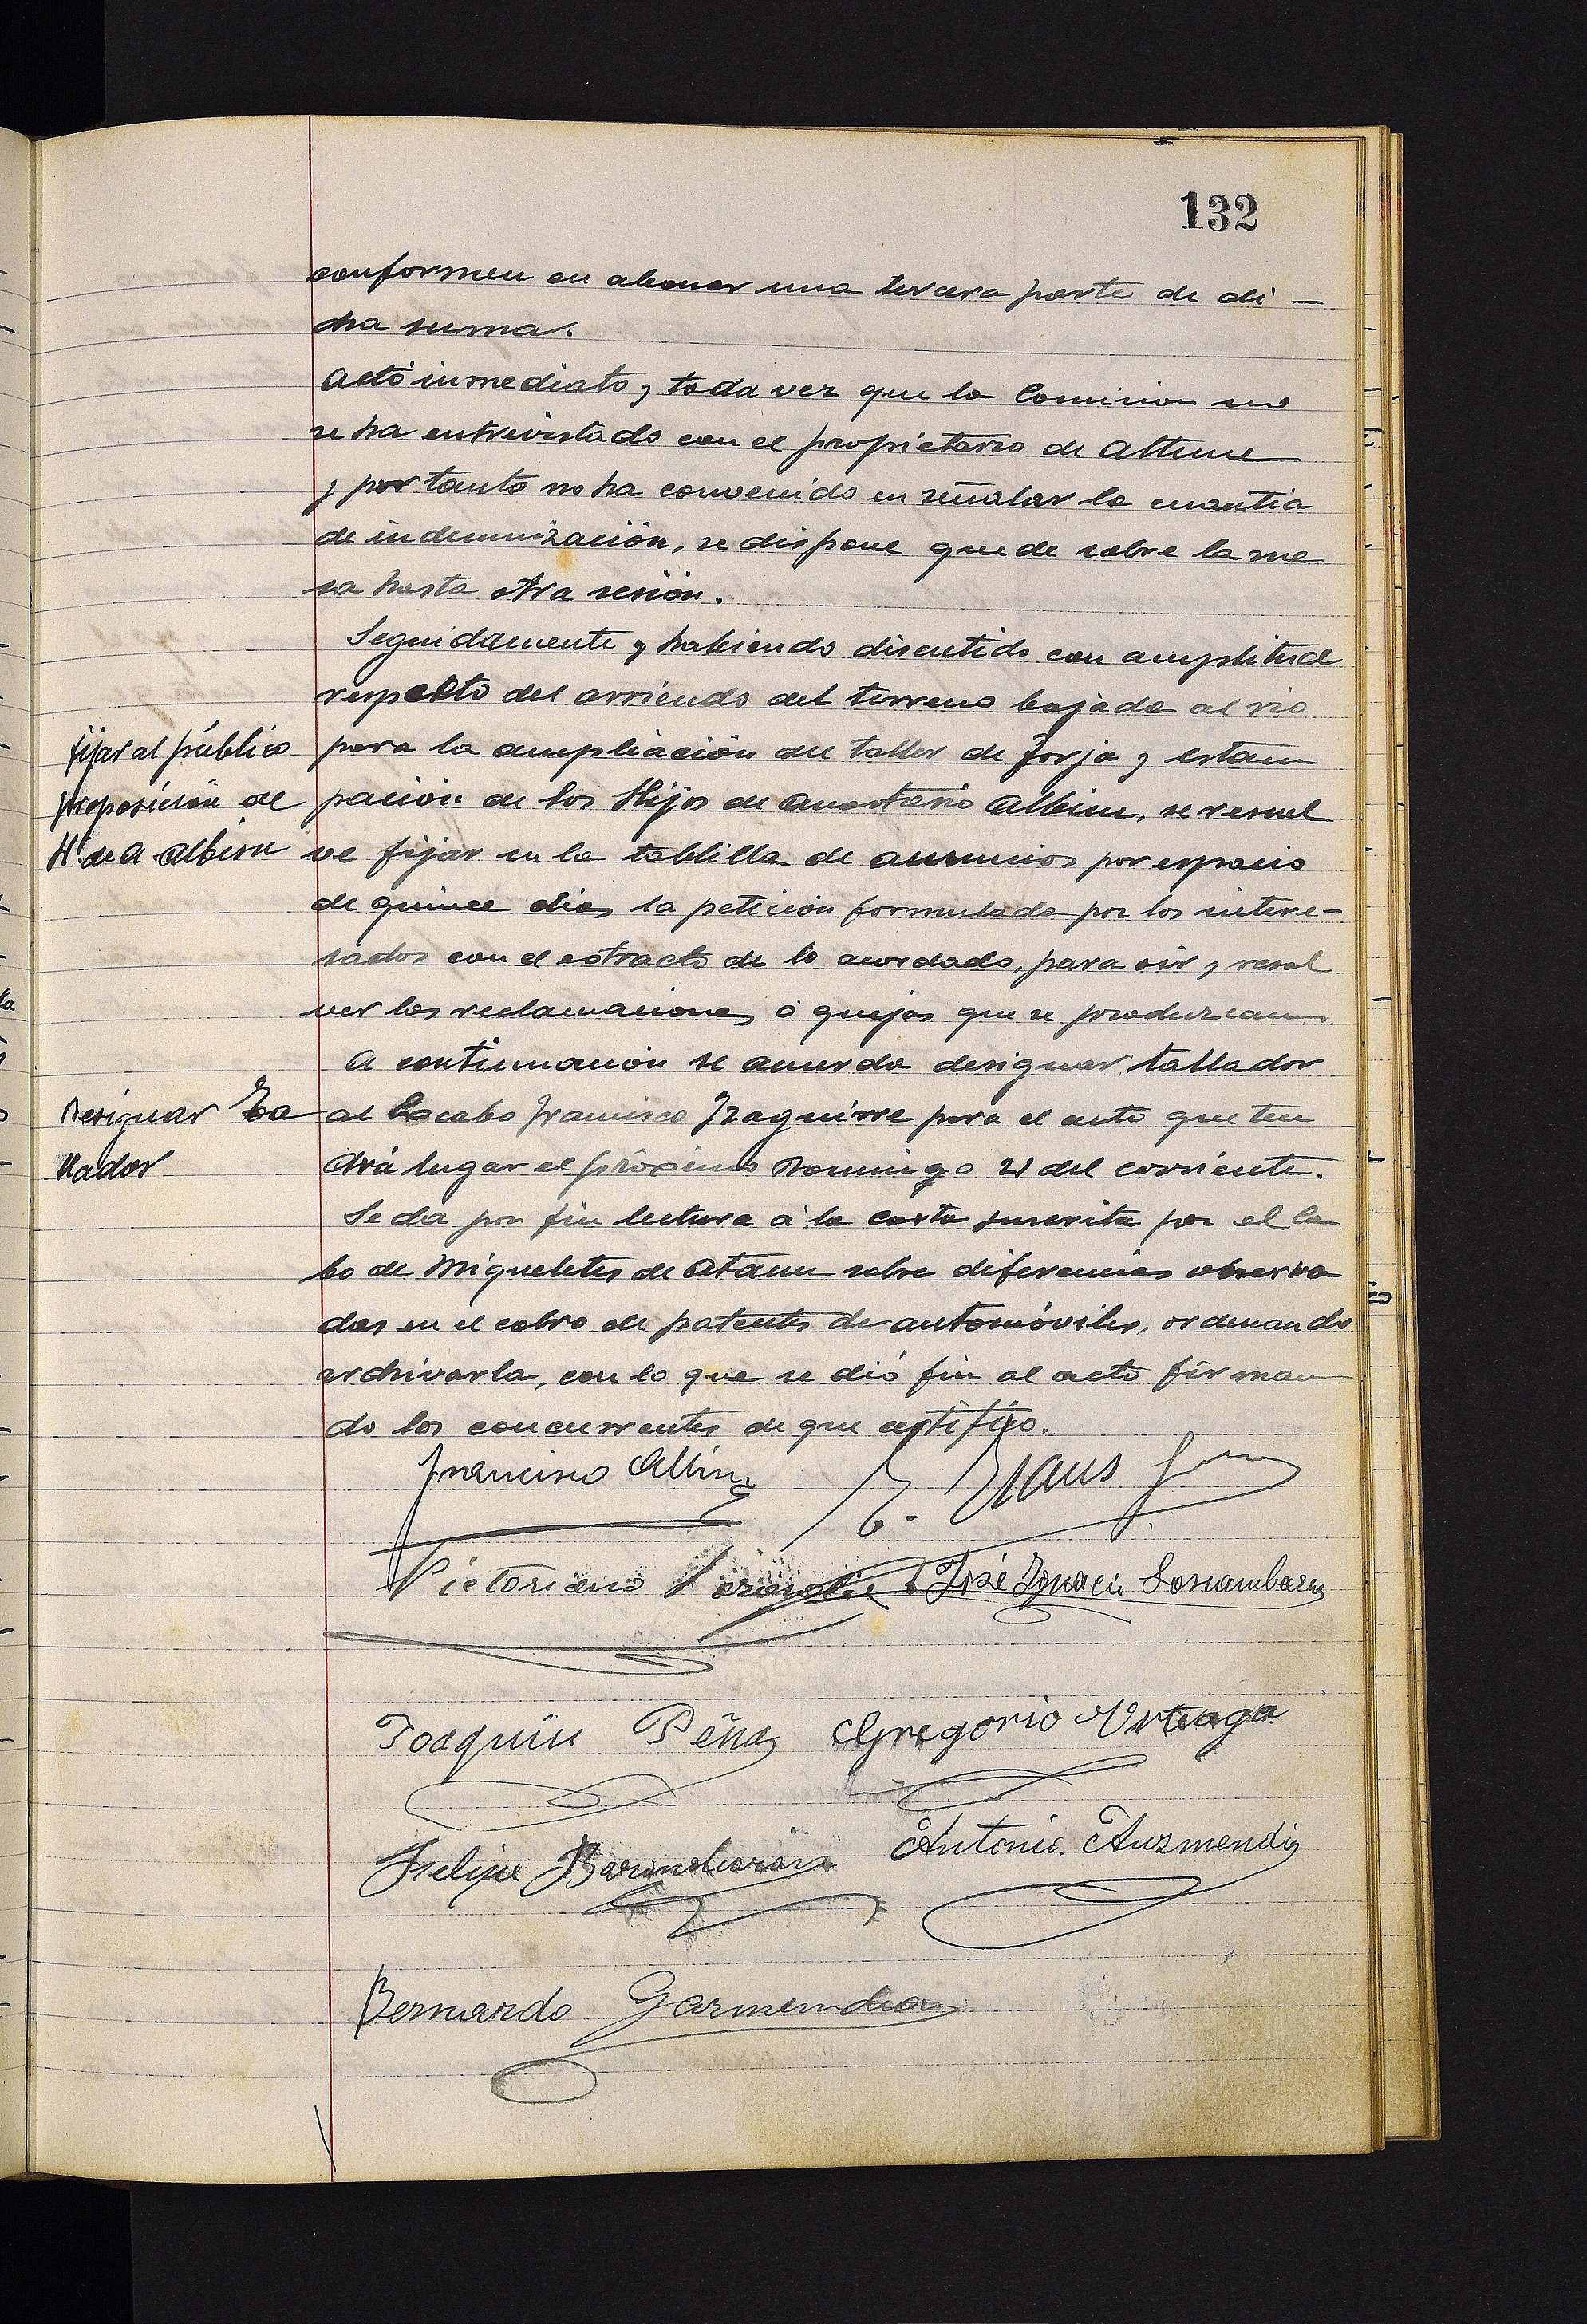 132
conformen en abonar una tercera parte de di-
cha suma.
Acto inmediato y toda vez que la Comision no
se ha entrevistado con el propietario de Altune
y por tanto no ha convenido en señalar la cuantia
de indemnización, se dispone quede sobre la me
sa hasta otra sesión.
Seguidamente y habiendo discutido con amplitud
respecto del arriendo del terreno bajada al rio
fijar al público
proposición de
H. de A Albisu
para la ampliación del taller de forja y estam
pación de los Hijos de Anastasio Albisu, se resuel
ve fijar en la tablilla de anuncios por espacio
de quince dias la petición formulada por los intere-
sados con el estracto de lo acordado, para oir y resol
ver las reclamaciones ó quejas que se produzcan.
A continuación se acuerda designar tallador
Designar ta
llador
al cabo Francisco Izaguirre para el acto que ten
drá lugar el próximo Domingo 21 del corriente.
Se da por fin lectura á la carta suscrita por el ca
bo de Miqueletes de Ataun sobre diferencias observa
das en el cobro de patentes de automóviles, ordenando
archivarla, con lo que se dió fin al acto firman
do los concurrentes de que certifico.
Francisco Albisu
Victoriano José Ignacio
Joaquin Peña Gregorio Urteaga
Felipe Antonio Auzmendi
Bernardo Garmendia